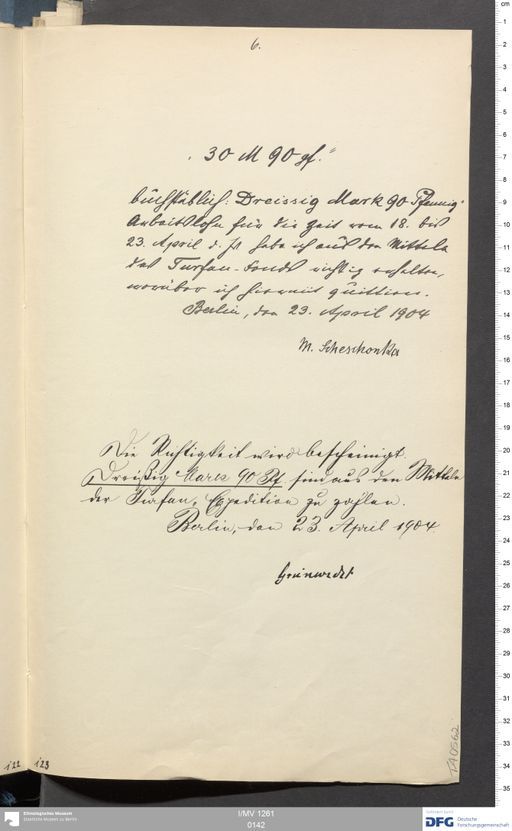 6.
30 M 90 pf.
buchstäblich: Dreissig Mark 90 Pfennig
Arbeitslohn für die Zeit vom 18. bis
23. April d. Js habe ich aus den Mitteln
des Turfan-Fonds richtig erhalten,
worüber ich hiermit quittire.
Berlin, den 23. April 1904
M. Scheschonka
Die Richtigkeit wird bescheinigt.
Dreißig Mark 90 Pf sind aus den Mitteln
der Turfan-Expedition zu zahlen.
Berlin, den 23. April 1904
Grünwedel
122 123
TA 0562
Ethnologisches Museum
Staatliche Museen zu Berlin
I/MV 1261
0142
gefördert durch
DFG Deutsche
Forschungsgemeinschaft
cm
1
2
3
4
5
6
7
8
9
10
11
12
13
14
15
16
17
18
19
20
21
22
23
24
25
26
27
28
29
30
31
32
33
34
35